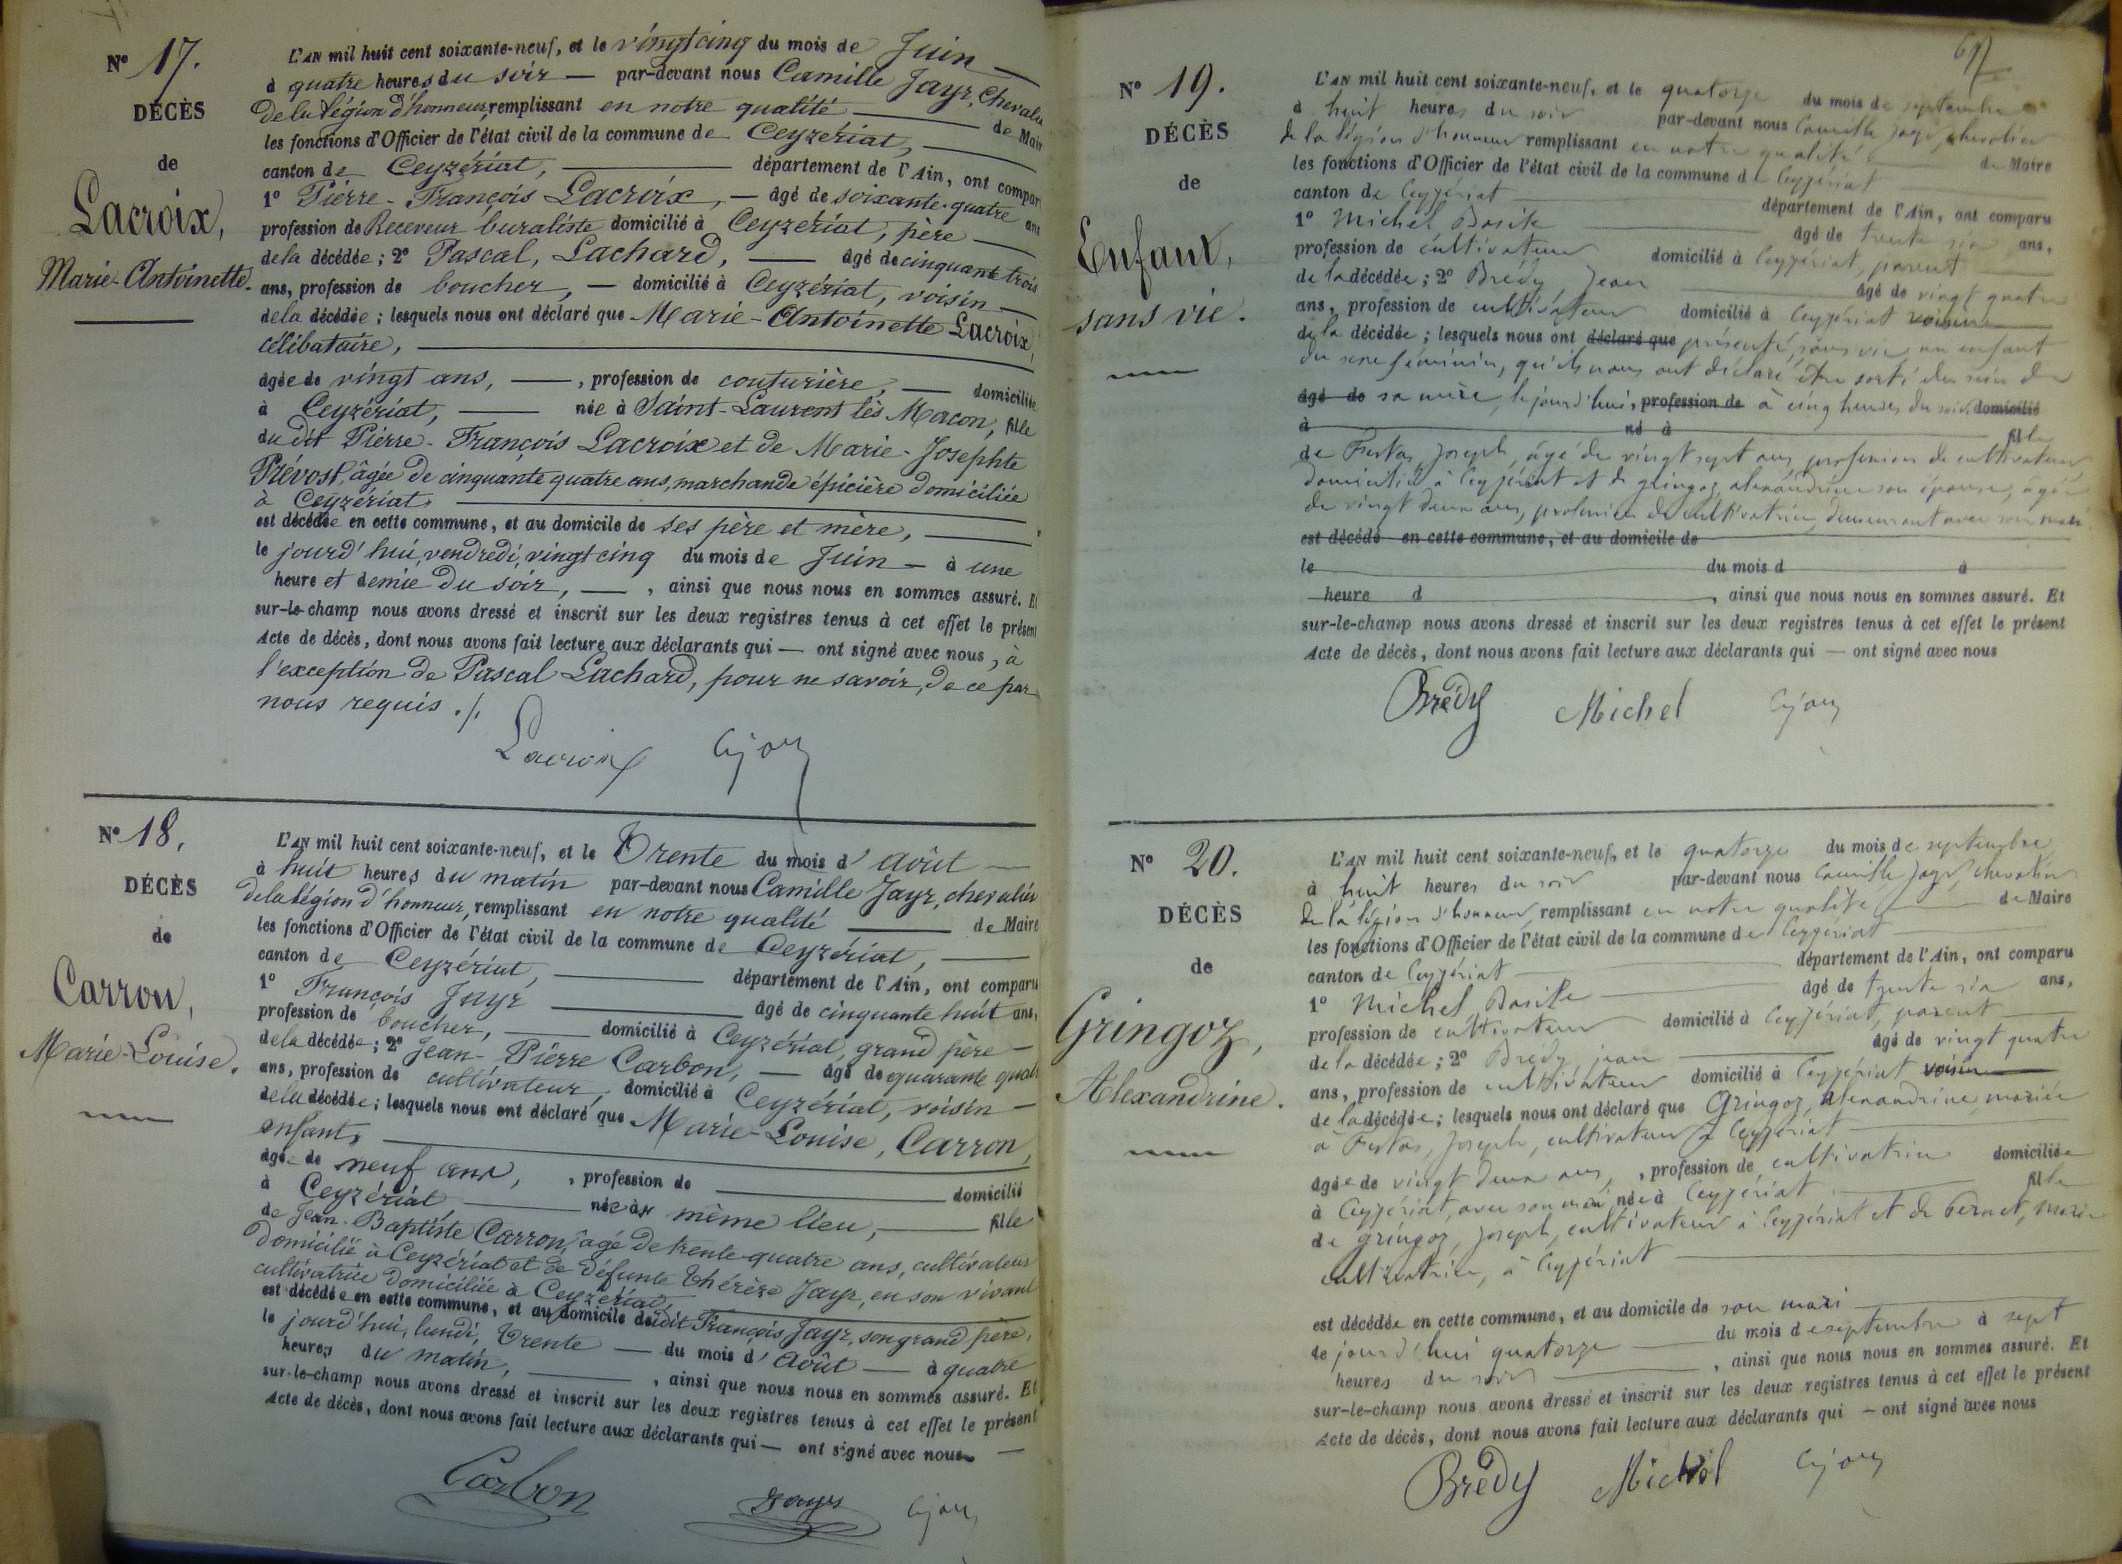 Nº 17.
DÉCÈS
de
Lacroix,
Marie-Antoinette.
L'AN mil huit cent soixante-neuf, et le vingt cinq du mois de Juin
à quatre heures du soir par-devant nous Camille Jayr, Chevalier
de la Légion d'honneur, remplissant en notre qualité de Maire
les fonctions d'Officier de l'état civil de la commune de Ceyzériat,
canton de Ceyzériat, département de l'Ain, ont comparu
1º Pierre-François Lacroix, âgé de soixante-quatre ans
profession de Receveur buraliste domicilié à Ceyzériat, père
de la décédée ; 2º Pascal, Lachard, âgé de cinquante trois
ans, profession de boucher, domicilié à Ceyzériat, voisin
de la décédée ; lesquels nous ont déclaré que Marie-Antoinette Lacroix,
célibataire,
âgée de vingt ans, , profession de couturière, domiciliée
à Ceyzériat, née à Saint-Laurent lès Macon, fille
du dit Pierre-François Lacroix et de Marie-Josephte
Prévost, âgée de cinquante quatre ans, marchande épicière domiciliée
à Ceyzériat
est décédée en cette commune, et au domicile de ses père et mère,
le jourd'hui, vendredi, vingt cinq du mois de Juin à une
heure et demie du soir, , ainsi que nous nous en sommes assuré. Et
sur-le-champ nous avons dressé et inscrit sur les deux registres tenus à cet effet le présent
Acte de décès, dont nous avons fait lecture aux déclarants qui ont signé avec nous, à
l'exception de Pascal Lachard, pour ne savoir, de ce par
nous requis ./.
Lacroix
Nº 18.
DÉCÈS
de
Carron,
Marie-Louise.
L'AN mil huit cent soixante-neuf, et le Trente du mois d'Août
à huit heures du matin par-devant nous Camille Jayr, chevalier
de la Légion d'honneur, remplissant en notre qualité de Maire
les fonctions d'Officier de l'état civil de la commune de Ceyzériat,
canton de Ceyzériat, département de l'Ain, ont comparu
1º François Jayr âgé de cinquante huit ans,
profession de boucher, domicilié à Ceyzériat, grand père
de la décédée ; 2º Jean-Pierre Carbon, âgé de quarante quatre
ans, profession de cultivateur, domicilié à Ceyzériat, voisin
de la décédée ; lesquels nous ont déclaré que Marie-Louise, Carron,
enfant,
âgée de neuf ans, , profession de domicilié
à Ceyzériat née au même lieu, fille
de Jean-Baptiste Carron, âgé de trente-quatre ans, cultivateur
domicilié à Ceyzériat et de défunte Thérèse Jayr, en son vivant
cultivatrice domiciliée à Ceyzériat,
est décédée en cette commune, et au domicile dudit François Jayr, son grand père,
le jourd'hui, lundi, Trente du mois d'Août à quatre
heures du matin, , ainsi que nous nous en sommes assuré. Et
sur-le-champ nous avons dressé et inscrit sur les deux registres tenus à cet effet le présent
Acte de décès, dont nous avons fait lecture aux déclarants qui ont signé avec nous
Carbon Jayr
Nº 19.
DÉCÈS
de
Enfant,
sans vie.
L'AN mil huit cent soixante-neuf, et le quatorze du mois de septembre
à huit heures du soir par-devant nous Camille Jayr, chevalier
de la légion d'honneur remplissant en notre qualité de Maire
les fonctions d'Officier de l'état civil de la commune de Ceyzériat
canton de Ceyzériat département de l'Ain, ont comparu
1º Michel Basile âgé de trente six ans,
profession de cultivateur domicilié à Ceyzériat, parent
de la décédée ; 2º Brédy, Jean âgé de vingt quatre
ans, profession de cultivateur domicilié à Ceyzériat voisin
de la décédée ; lesquels nous ont déclaré que présenté, sans vie, un enfant
du sexe féminin, qu'ils nous ont déclaré être sorti du sein de
âgé de sa mère, le jourd'hui, profession de à cinq heures du soir, domicilié
à né à fille
de Joseph, âgé de vingt sept ans, profession de cultivateur
domicilié à Ceyzériat et de gringoz, alexandrine son épouse, âgée
de vingt deux ans, profession de cultivatrice, demeurant avec son mari.
est décédé en cette commune, et au domicile de
le du mois d à
heure d , ainsi que nous nous en sommes assuré. Et
sur-le-champ nous avons dressé et inscrit sur les deux registres tenus à cet effet le présent
Acte de décès, dont nous avons fait lecture aux déclarants qui ont signé avec nous
Brédy Michel
Nº 20.
DÉCÈS
de
Gringoz,
Alexandrine.
L'AN mil huit cent soixante-neuf, et le quatorze du mois de septembre
à huit heures du soir par-devant nous Camille Jayr, chevalier
de la légion d'honneur, remplissant en notre qualité de Maire
les fonctions d'Officier de l'état civil de la commune de Ceyzériat
canton de Ceyzériat département de l'Ain, ont comparu
1º Michel Basile âgé de trente six ans,
profession de cultivateur domicilié à Ceyzériat, parent
de la décédée ; 2º Brédy jean âgé de vingt quatre
ans, profession de cultivateur domicilié à Ceyzériat voisin
de la décédée ; lesquels nous ont déclaré que Gringoz, alexandrine, mariée
à Joseph, cultivateur à Ceyzériat
âgée de vingt deux ans, , profession de cultivatrice domiciliée
à Ceyzériat, avec son mari née à Ceyzériat fille
de gringoz, Joseph, cultivateur à Ceyzériat et de Marie
cultivatrice, à Ceyzériat
est décédée en cette commune, et au domicile de son mari
le jourd'hui quatorze du mois de septembre à sept
heures du soir , ainsi que nous nous en sommes assuré. Et
sur-le-champ nous avons dressé et inscrit sur les deux registres tenus à cet effet le présent
Acte de décès, dont nous avons fait lecture aux déclarants qui ont signé avec nous
Brédy Michel